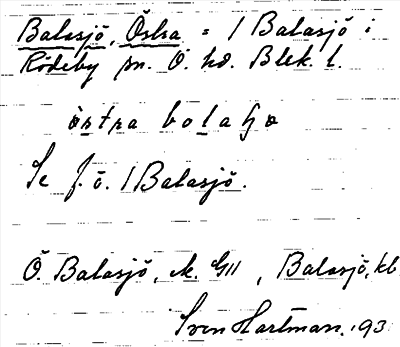 Balasjö, Östra = / Balasjö i
Rödeby sn. Ö. hd. Blek. l.
östra bolaʃjø
Se f. ö. / Balasjö.
Ö. Balasjö, By. GII, Balasjö, kb
Sven Hartman. 193